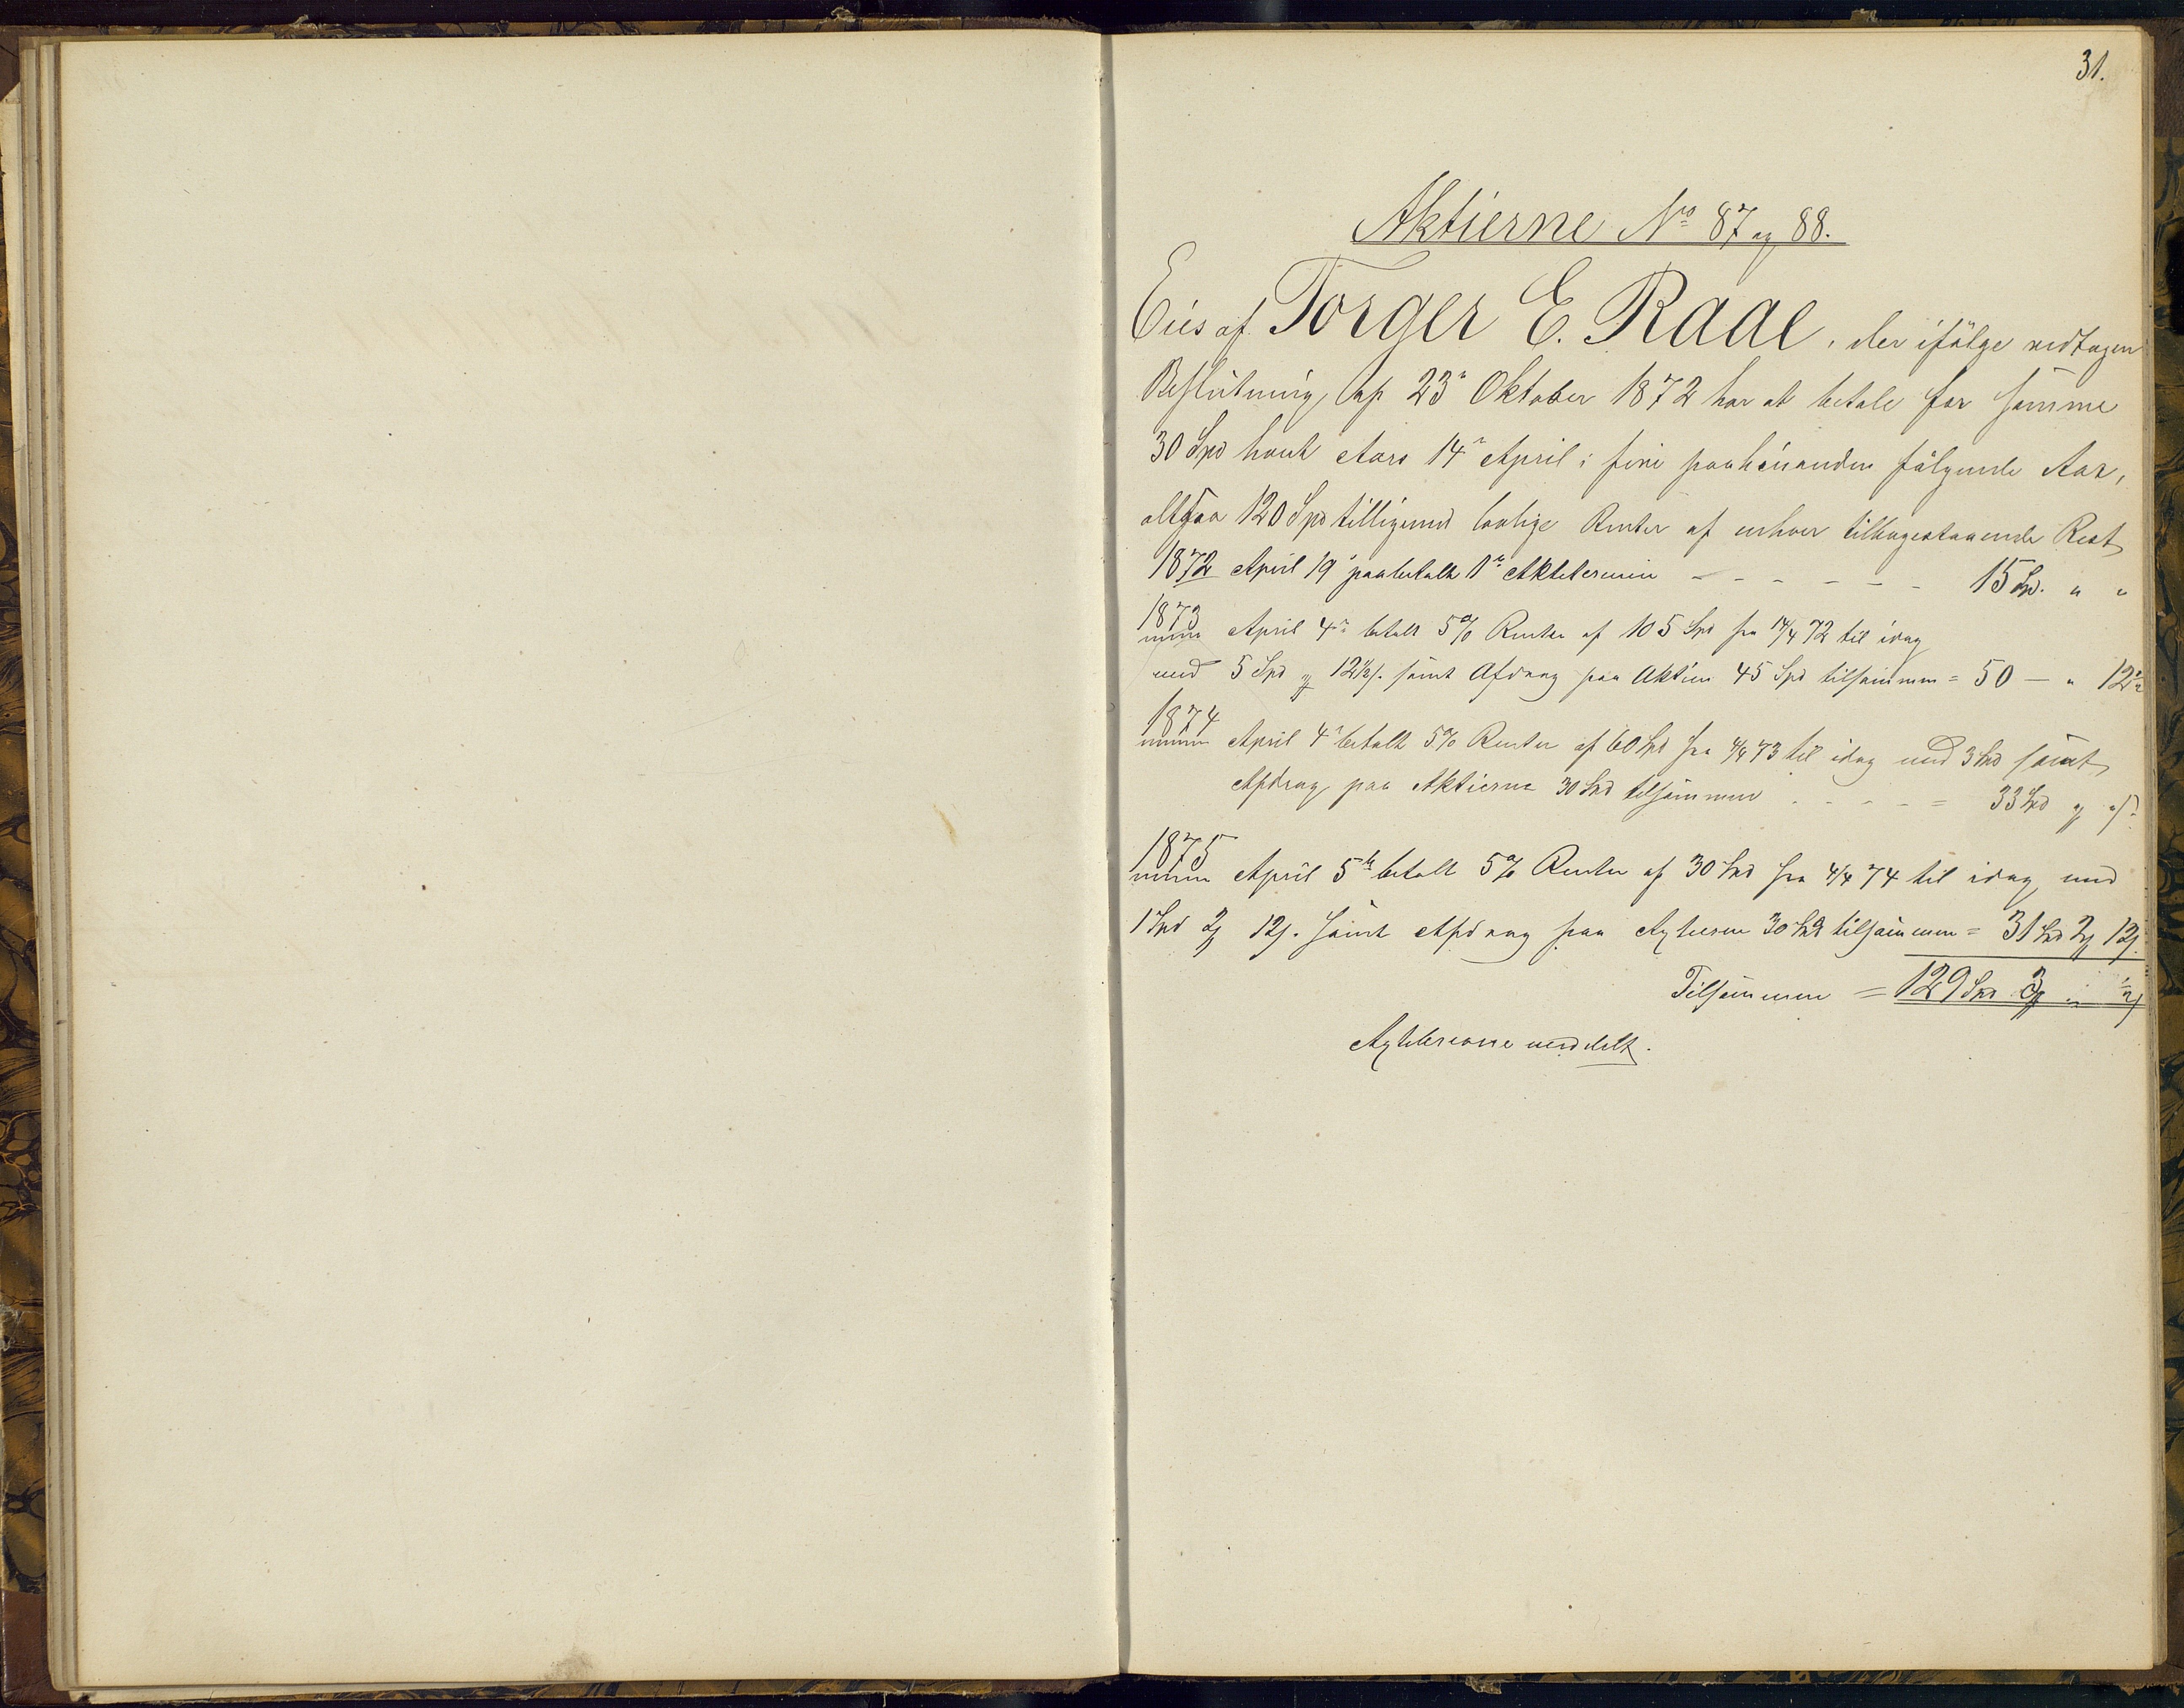 31.
Aktierne No 87 og 88.
Eies af Torger E. Raae, der ifölge vedtagen
Beslutning af 23de Oktober 1872 har at betale for samme
30 Spd hvert Aars 14de April i fire paahinanden fölgende Aar,
altsaa 120 Spd tilligemed lovlige Renter af enhver tilbagestaaende Rest
1872 April 19 paabetalt 1ste Aktietermin - - - - - - 15 Sp. " "
1873 April 4de betalt 5% Renter af 105 Spd fra 14/4 72 til idag
med 5 Spd " 12½ s. samt Afdrag paa Aktien 45 Spd tilsammen = 50 — " 12½
1874 April 4de betalt 5% Renter af 60 Spd fra 4/4 73 til idag med 3 Spd samt
Afdrag paa Aktierne 30 Spd tilsammen - - - - = 33 Spd
1875 April 5te betalt 5% Renter af 30 Spd fra 4/4 74 til idag med
1 Spd 2 12 s. samt Afdrag paa Agtierne 30 Spd tilsammen = 31 Spd 2 12 s.
Tilsammen = 129 Spd 3 " ½ s
Agtiebreve meddelt.